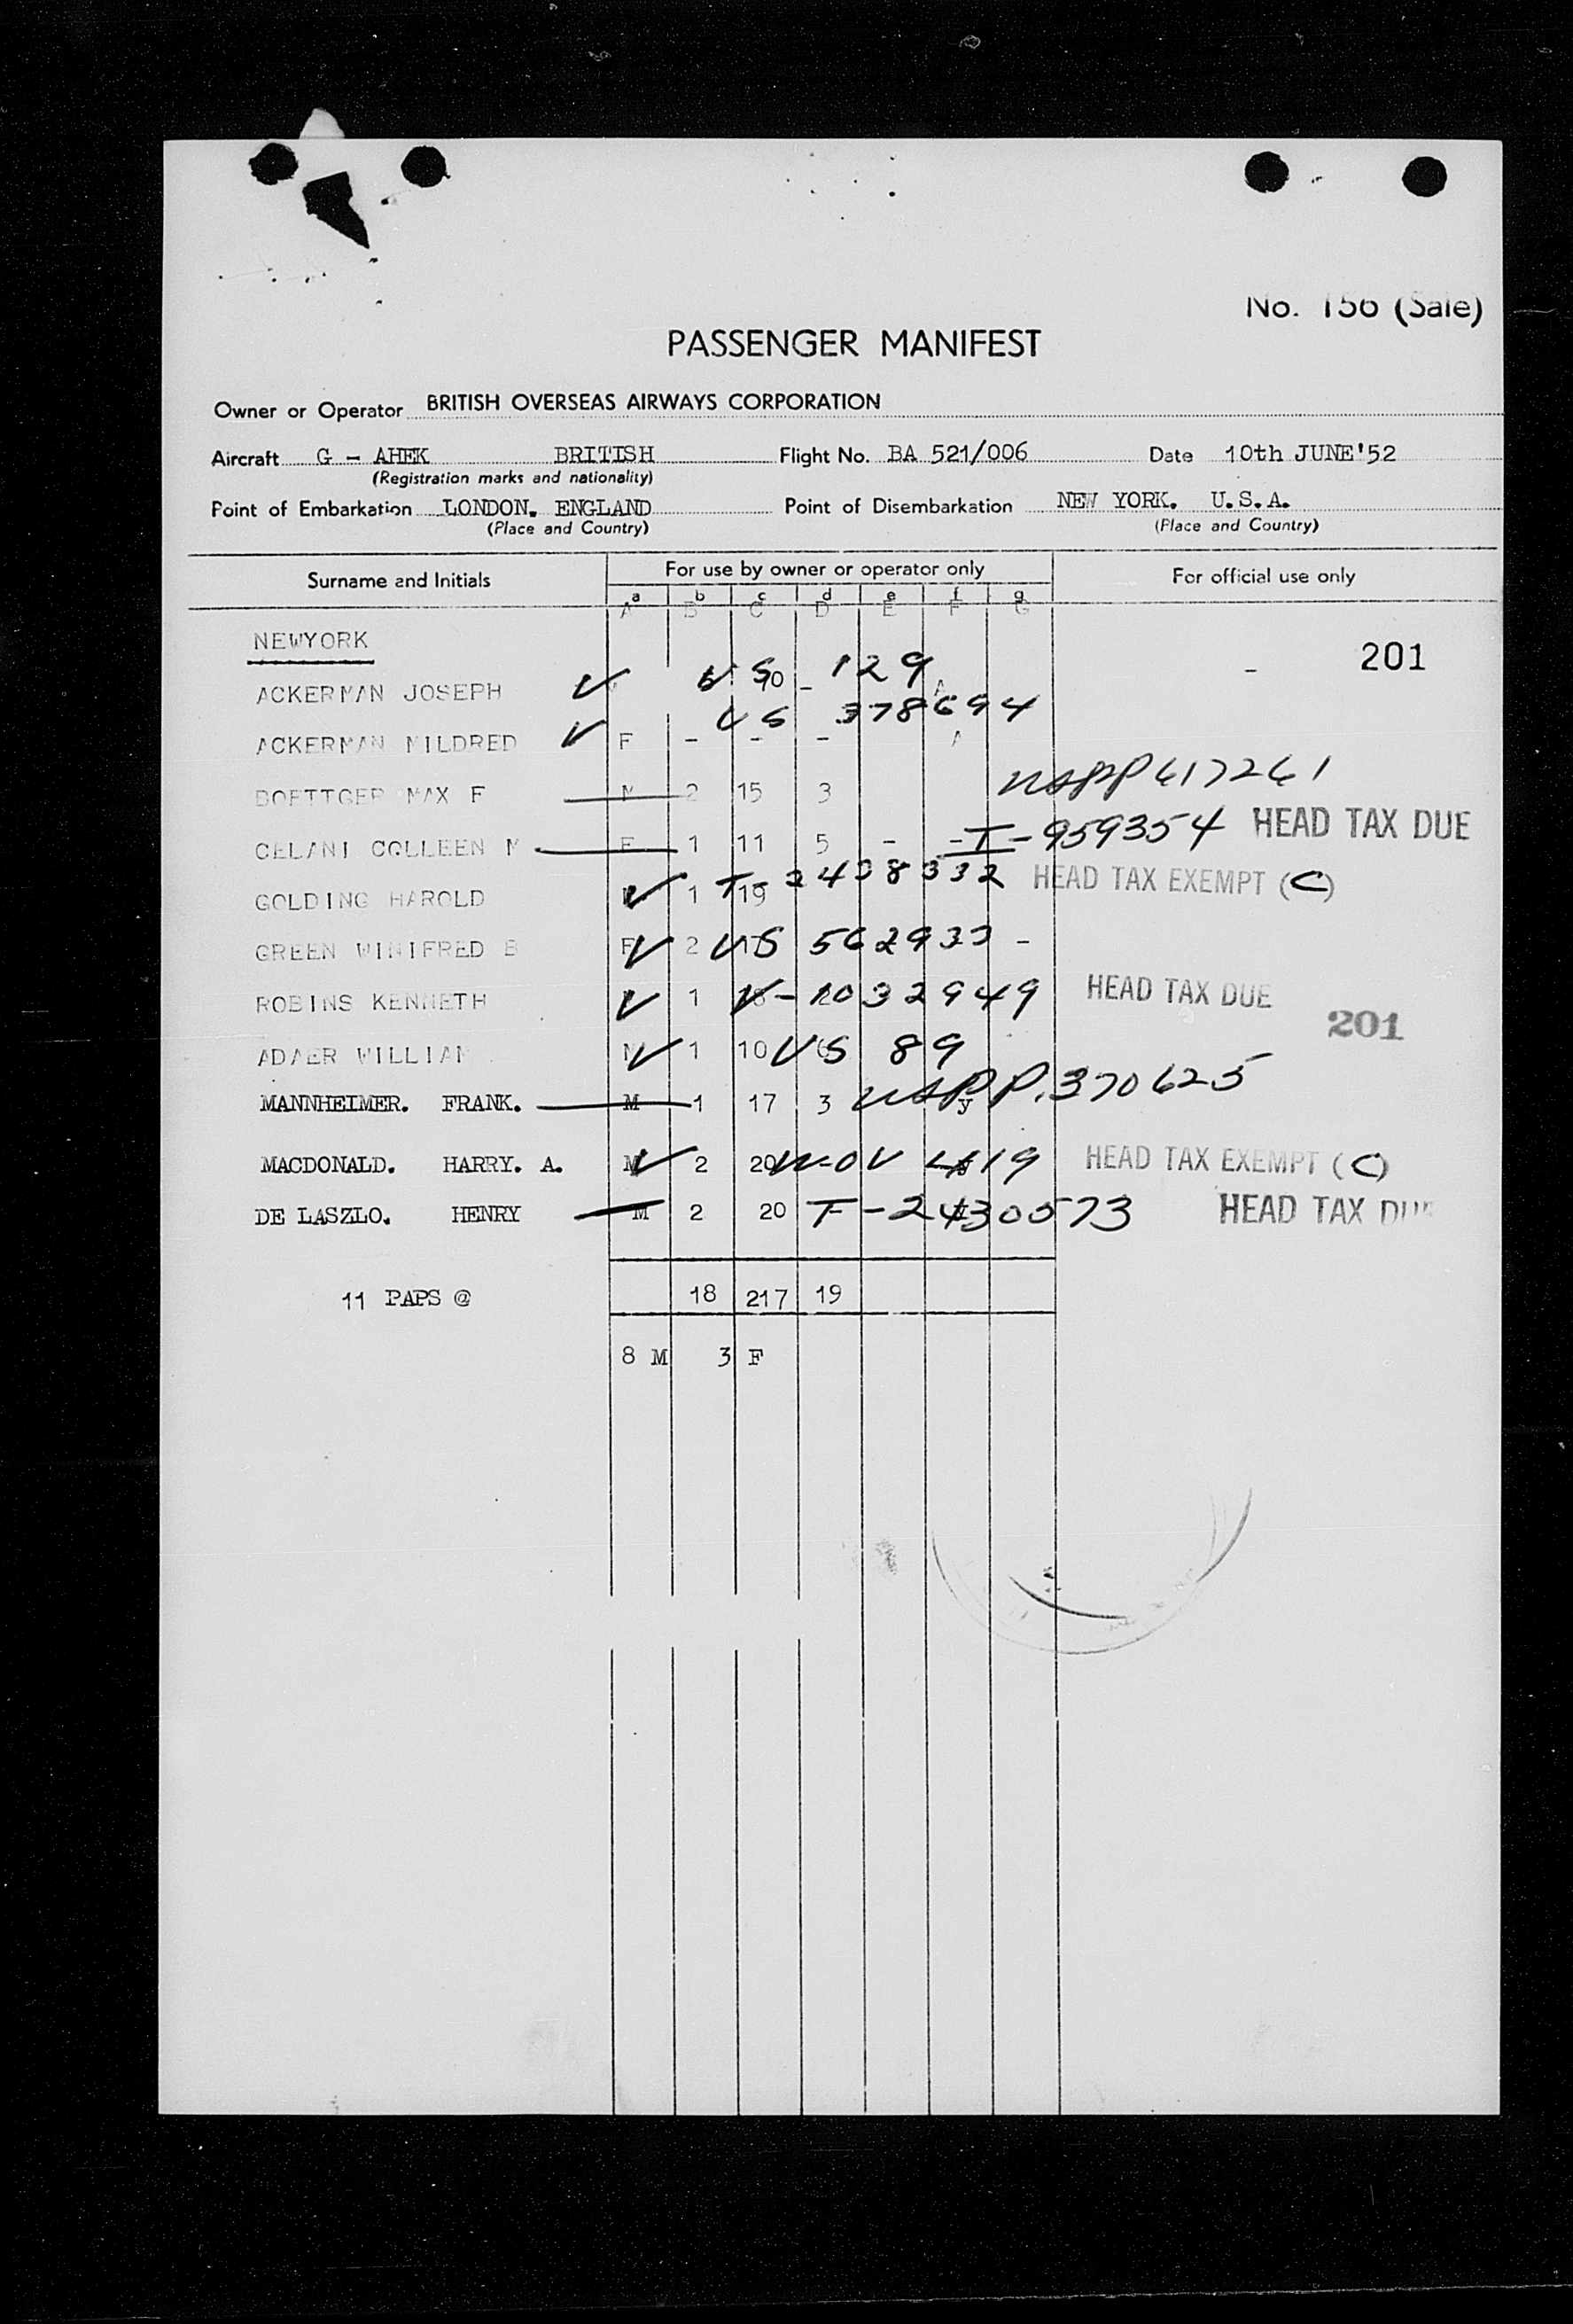 No. 156 (Sale)
PASSENGER MANIFEST
Owner or Operator BRITISH OVERSEAS AIRWAYS CORPORATION
Aircraft G - AHEK BRITISH Flight No. BA 521/006 Date 10th JUNE'52
(Registration marks and nationality)
Point of Embarkation LONDON. ENGLAND Point of Disembarkation NEW YORK. U.S.A.
(Place and Country) (Place and Country)
Surname and Initials For use by owner or operator only For official use only
a b c d e f g
A B C D E F G
NEWYORK
201
ACKERMAN JOSEPH US 129 -
US 378694
ACKERMAN MILDRED F - - - A
BOETTGER MAX F M 2 15 3 USPP 617261
CELANI COLLEEN M F 1 11 5 - - T-959354 HEAD TAX DUE
GOLDING HAROLD 1 19 T-2438332 HEAD TAX EXEMPT (C)
GREEN WINIFRED B F 2 US 562933 -
ROBINS KENNETH 1 V-1032949 HEAD TAX DUE
201
ADAER WILLIAM M 1 10 US 89
MANNHEIMER. FRANK. M 1 17 3 y USPP. 370625
MACDONALD. HARRY. A. M 2 20 HEAD TAX EXEMPT (C)
DE LASZLO. HENRY M 2 20 T-2430573 HEAD TAX DUE
11 PAPS @ 18 217 19
8 M 3 F